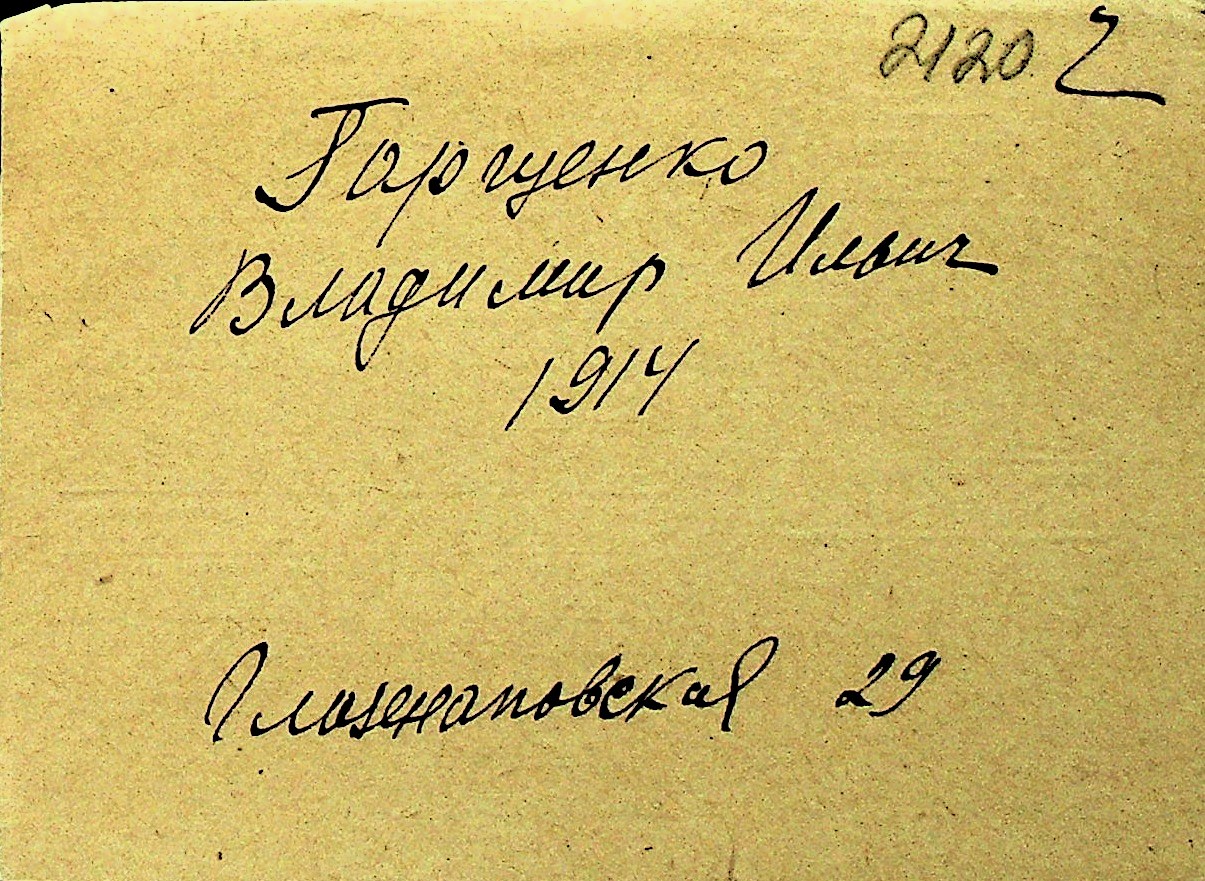 2120
Гарщенко
Владимир Ильич
1914
29